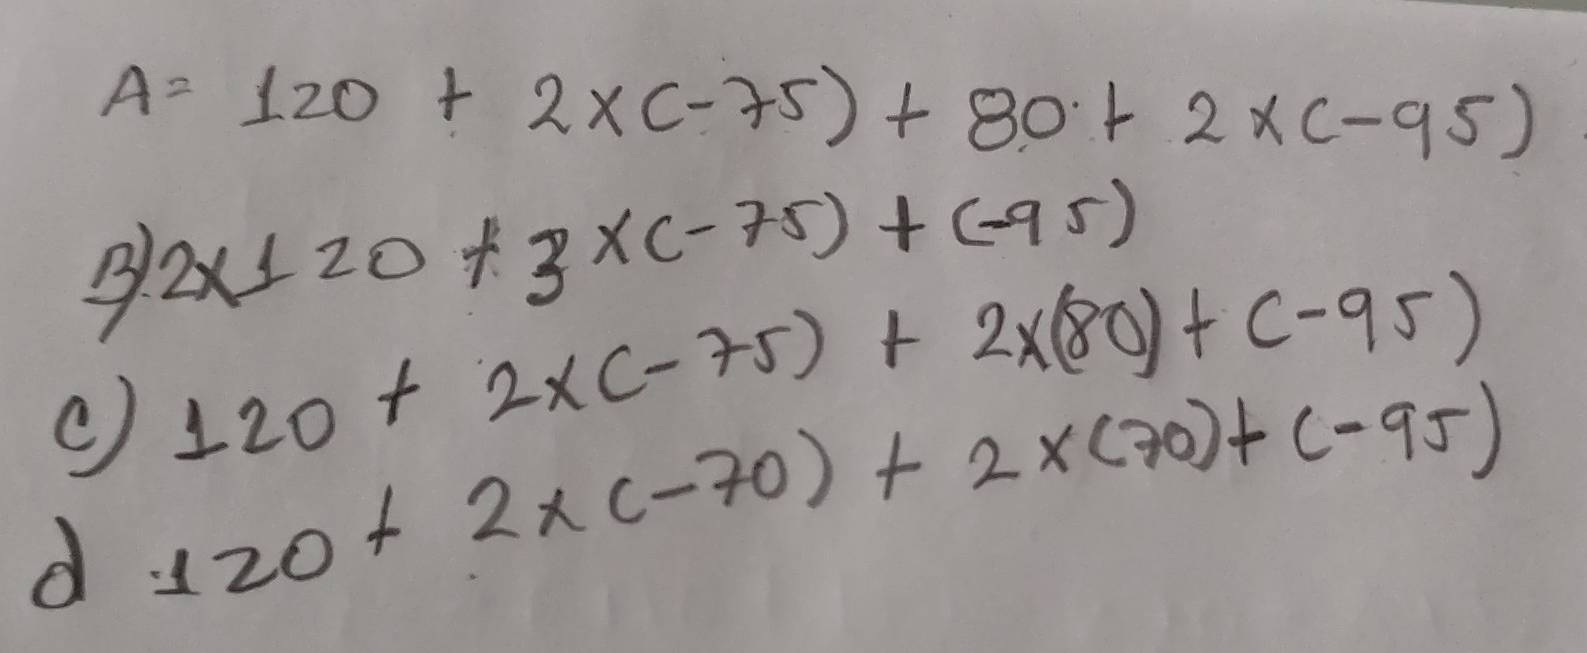 A= 120 + 2x(-75) + 80 + 2x(-95)
B) 2x120 + 3x(-75) + (-95)
c) 120 + 2x(-75) + 2x(80) + (-95)
d 120 + 2x(-70) + 2x(70) + (-95)